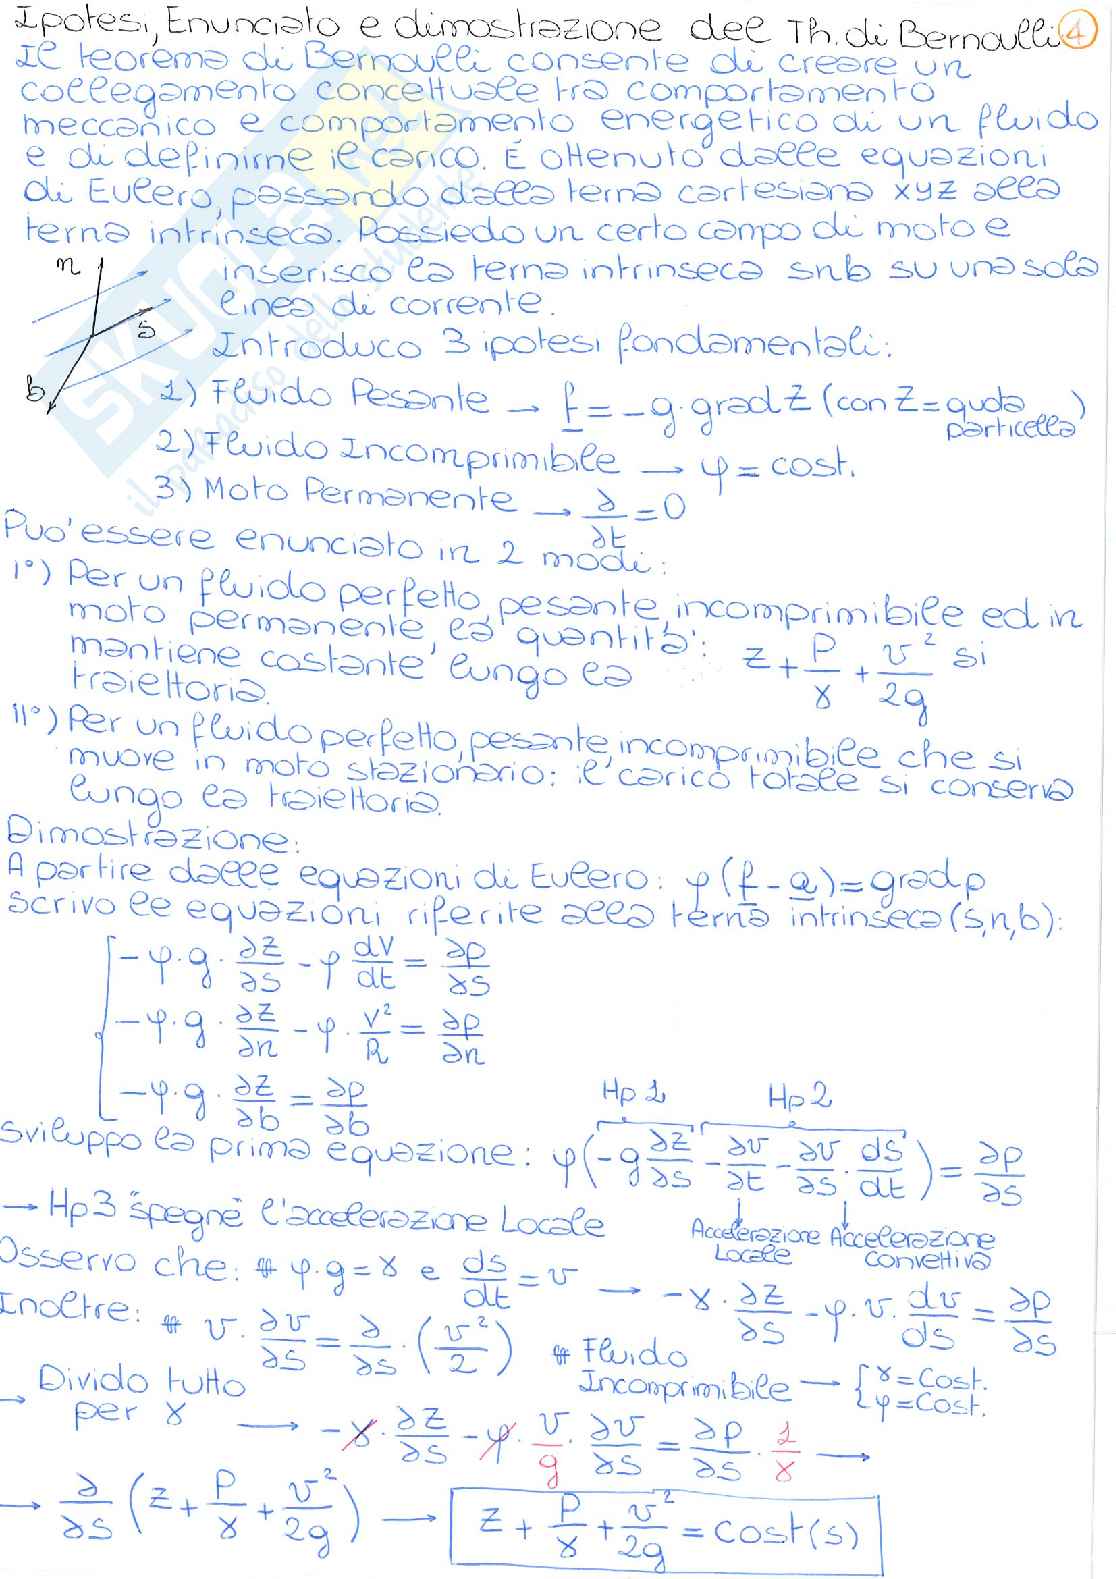 Ipotesi, Enunciato e dimostrazione del Th. di Bernoulli 4
Il teorema di Bernoulli consente di creare un
collegamento concettuale tra comportamento
meccanico e comportamento energetico di un fluido
e di definirne il carico. È ottenuto dalle equazioni
di Eulero, passando dalla terna cartesiana xyz alla
terna intrinseca. Possiedo un certo campo di moto e
inserisco la terna intrinseca snb su una sola
linea di corrente.
n
s
b
Introduco 3 ipotesi fondamentali:
1) Fluido Pesante → f = -g · grad z (con z = quota particella)
2) Fluido Incomprimibile → φ = cost.
3) Moto Permanente → ∂/∂t = 0
Puo' essere enunciato in 2 modi:
I°) Per un fluido perfetto, pesante, incomprimibile ed in
moto permanente, la quantità: z + P/γ + v²/2g si
mantiene costante lungo la
traiettoria.
II°) Per un fluido perfetto, pesante, incomprimibile che si
muove in moto stazionario: il carico totale si conserva
lungo la traiettoria.
Dimostrazione:
A partire dalle equazioni di Eulero: φ(f - a) = grad p
scrivo le equazioni riferite alla terna intrinseca (s,n,b):
-φ·g · ∂z/∂s - φ dv/dt = ∂p/∂s
-φ·g · ∂z/∂n - φ · v²/R = ∂p/∂n
-φ·g · ∂z/∂b = ∂p/∂b
Hp 1 Hp 2
Sviluppo la prima equazione: φ(-g ∂z/∂s - ∂v/∂t - ∂v/∂s · ds/dt) = ∂p/∂s
→ Hp3 "spegne" l'accelerazione Locale
Accelerazione Locale
Accelerazione Convettiva
Osservo che: # φ·g = γ e ds/dt = v → -γ · ∂z/∂s - φ·v· dv/ds = ∂p/∂s
Inoltre: # v · ∂v/∂s = ∂/∂s · (v²/2) # Fluido Incomprimibile → { γ = Cost. φ = Cost.
→ Divido tutto per γ → -γ · ∂z/∂s - φ · v/g · ∂v/∂s = ∂p/∂s · 1/γ →
→ ∂/∂s (z + P/γ + v²/2g) → z + P/γ + v²/2g = cost(s)
SKUOLA.net
il paradiso dello studente